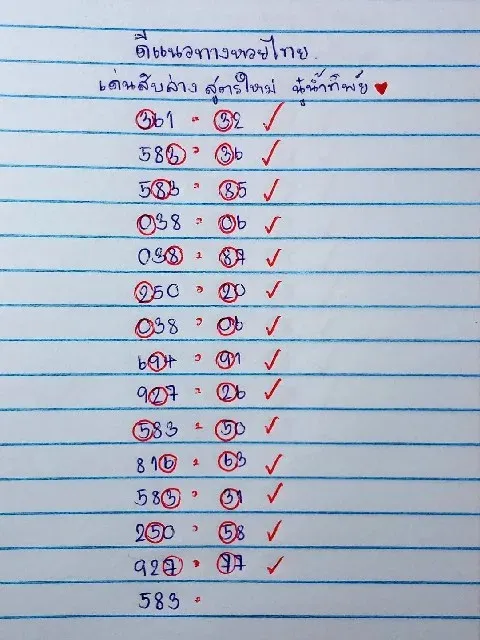 ตีแนวทางหวยไทย
เด่นสิบล่าง สูตรใหม่ นู๋น้ำทิพย์
361 = 32
583 = 36
583 = 85
038 = 06
038 = 87
250 = 20
038 = 06
694 = 91
927 = 26
583 = 50
816 = 63
583 = 31
250 = 58
927 = 77
583 =